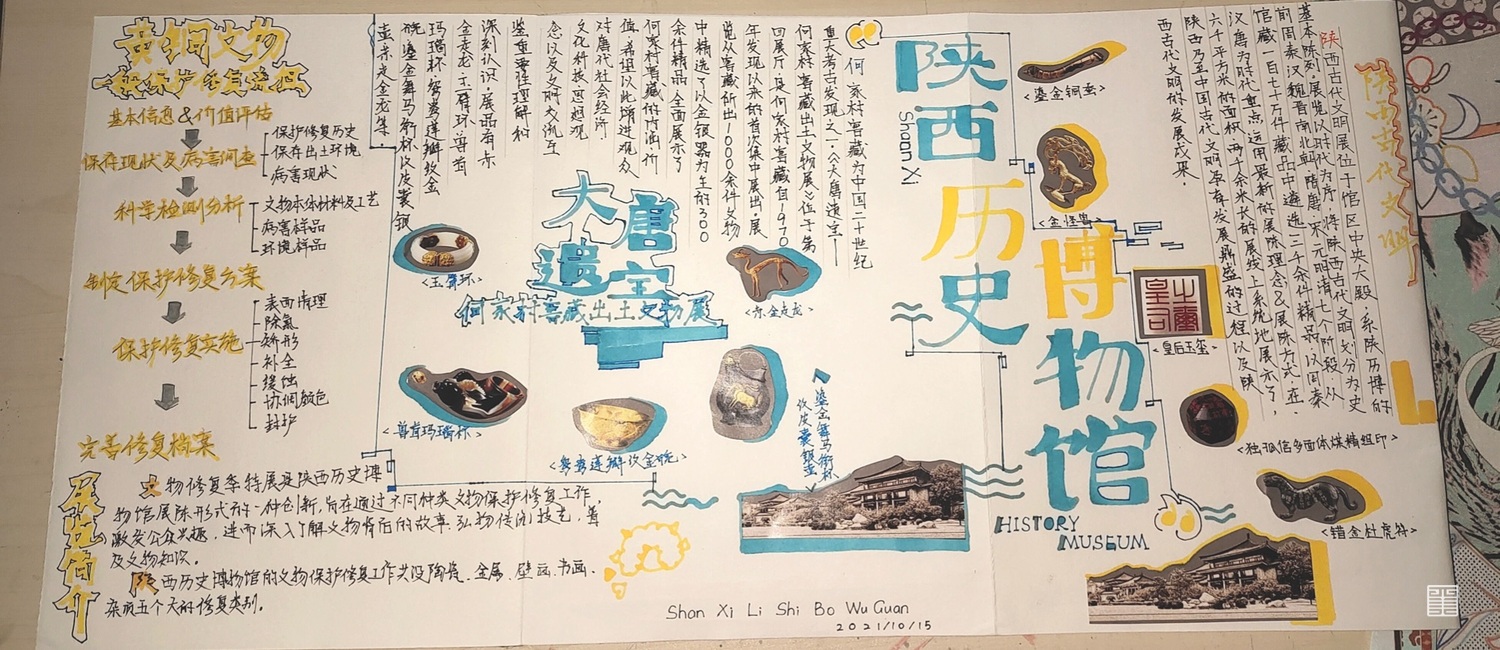 陕西古代文明
陕西古代文明展位于馆区中央大殿,系陕历博的
基本陈列,展览以时代为序,将陕西古代文明划分为史
前、周、秦、汉、魏晋南北朝、隋唐、宋元明清七个阶段,从
馆藏一百七十万件藏品中遴选三千余件精品,以周秦
汉唐为时代重点,运用最新的展陈理念&展陈方式,在
六千平方米的面积、两千余米长的展线上系统地展示了,
陕西乃至中国古代文明孕育发展鼎盛的过程以及陕
西古代文明的发展成果。
陕西
Shaan Xi
历史
博物馆
HISTORY
MUSEUM
<鎏金铜蚕>
<金怪兽>
皇后之玺
<皇后玉玺>
<独孤信多面体煤精组印>
<错金杜虎符>
何家村窖藏为中国二十世纪
重大考古发现之一,《大唐遗宝——
何家村窖藏出土文物展》位于第
四展厅,是何家村窖藏自1970
年发现以来的首次集中展出,展
览从窖藏所出1000余件文物
中精选了以金银器为主的300
余件精品,全面展示了
何家村窖藏的内涵价
值,希望以此增进观众
对唐代社会经济
文化科技思想观
念以及文明交流互
鉴重要性理解和
深刻认识,展品有赤
金走龙、玉臂环、兽首
玛瑙杯、鸳鸯莲瓣纹金
碗、鎏金舞马衔杯纹皮囊银
壶、赤金走龙等。
大唐
遗宝
何家村窖藏出土文物展
<玉臂环>
<赤金走龙>
<兽首玛瑙杯>
<鸳鸯莲瓣纹金碗>
鎏金舞马衔杯
纹皮囊银壶
黄铜文物
一般保护修复流程
基本信息&价值评估
保存现状及病害调查
保护修复历史
保存出土环境
病害现状
科学检测分析
文物本体材料及工艺
病害样品
环境样品
制定保护修复方案
保护修复实施
表面清理
除氯
矫形
补全
缓蚀
协调做色
封护
完善修复档案
展览简介
文物修复季特展是陕西历史博
物馆展陈形式的一种创新,旨在通过不同种类文物保护修复工作,
激发公众兴趣,进而深入了解文物背后的故事,弘扬传统技艺,普
及文物知识。
陕西历史博物馆的文物保护修复工作共设陶瓷、金属、壁画、书画、
杂项五个大的修复类别。
Shan Xi Li Shi Bo Wu Guan
2021/10/15